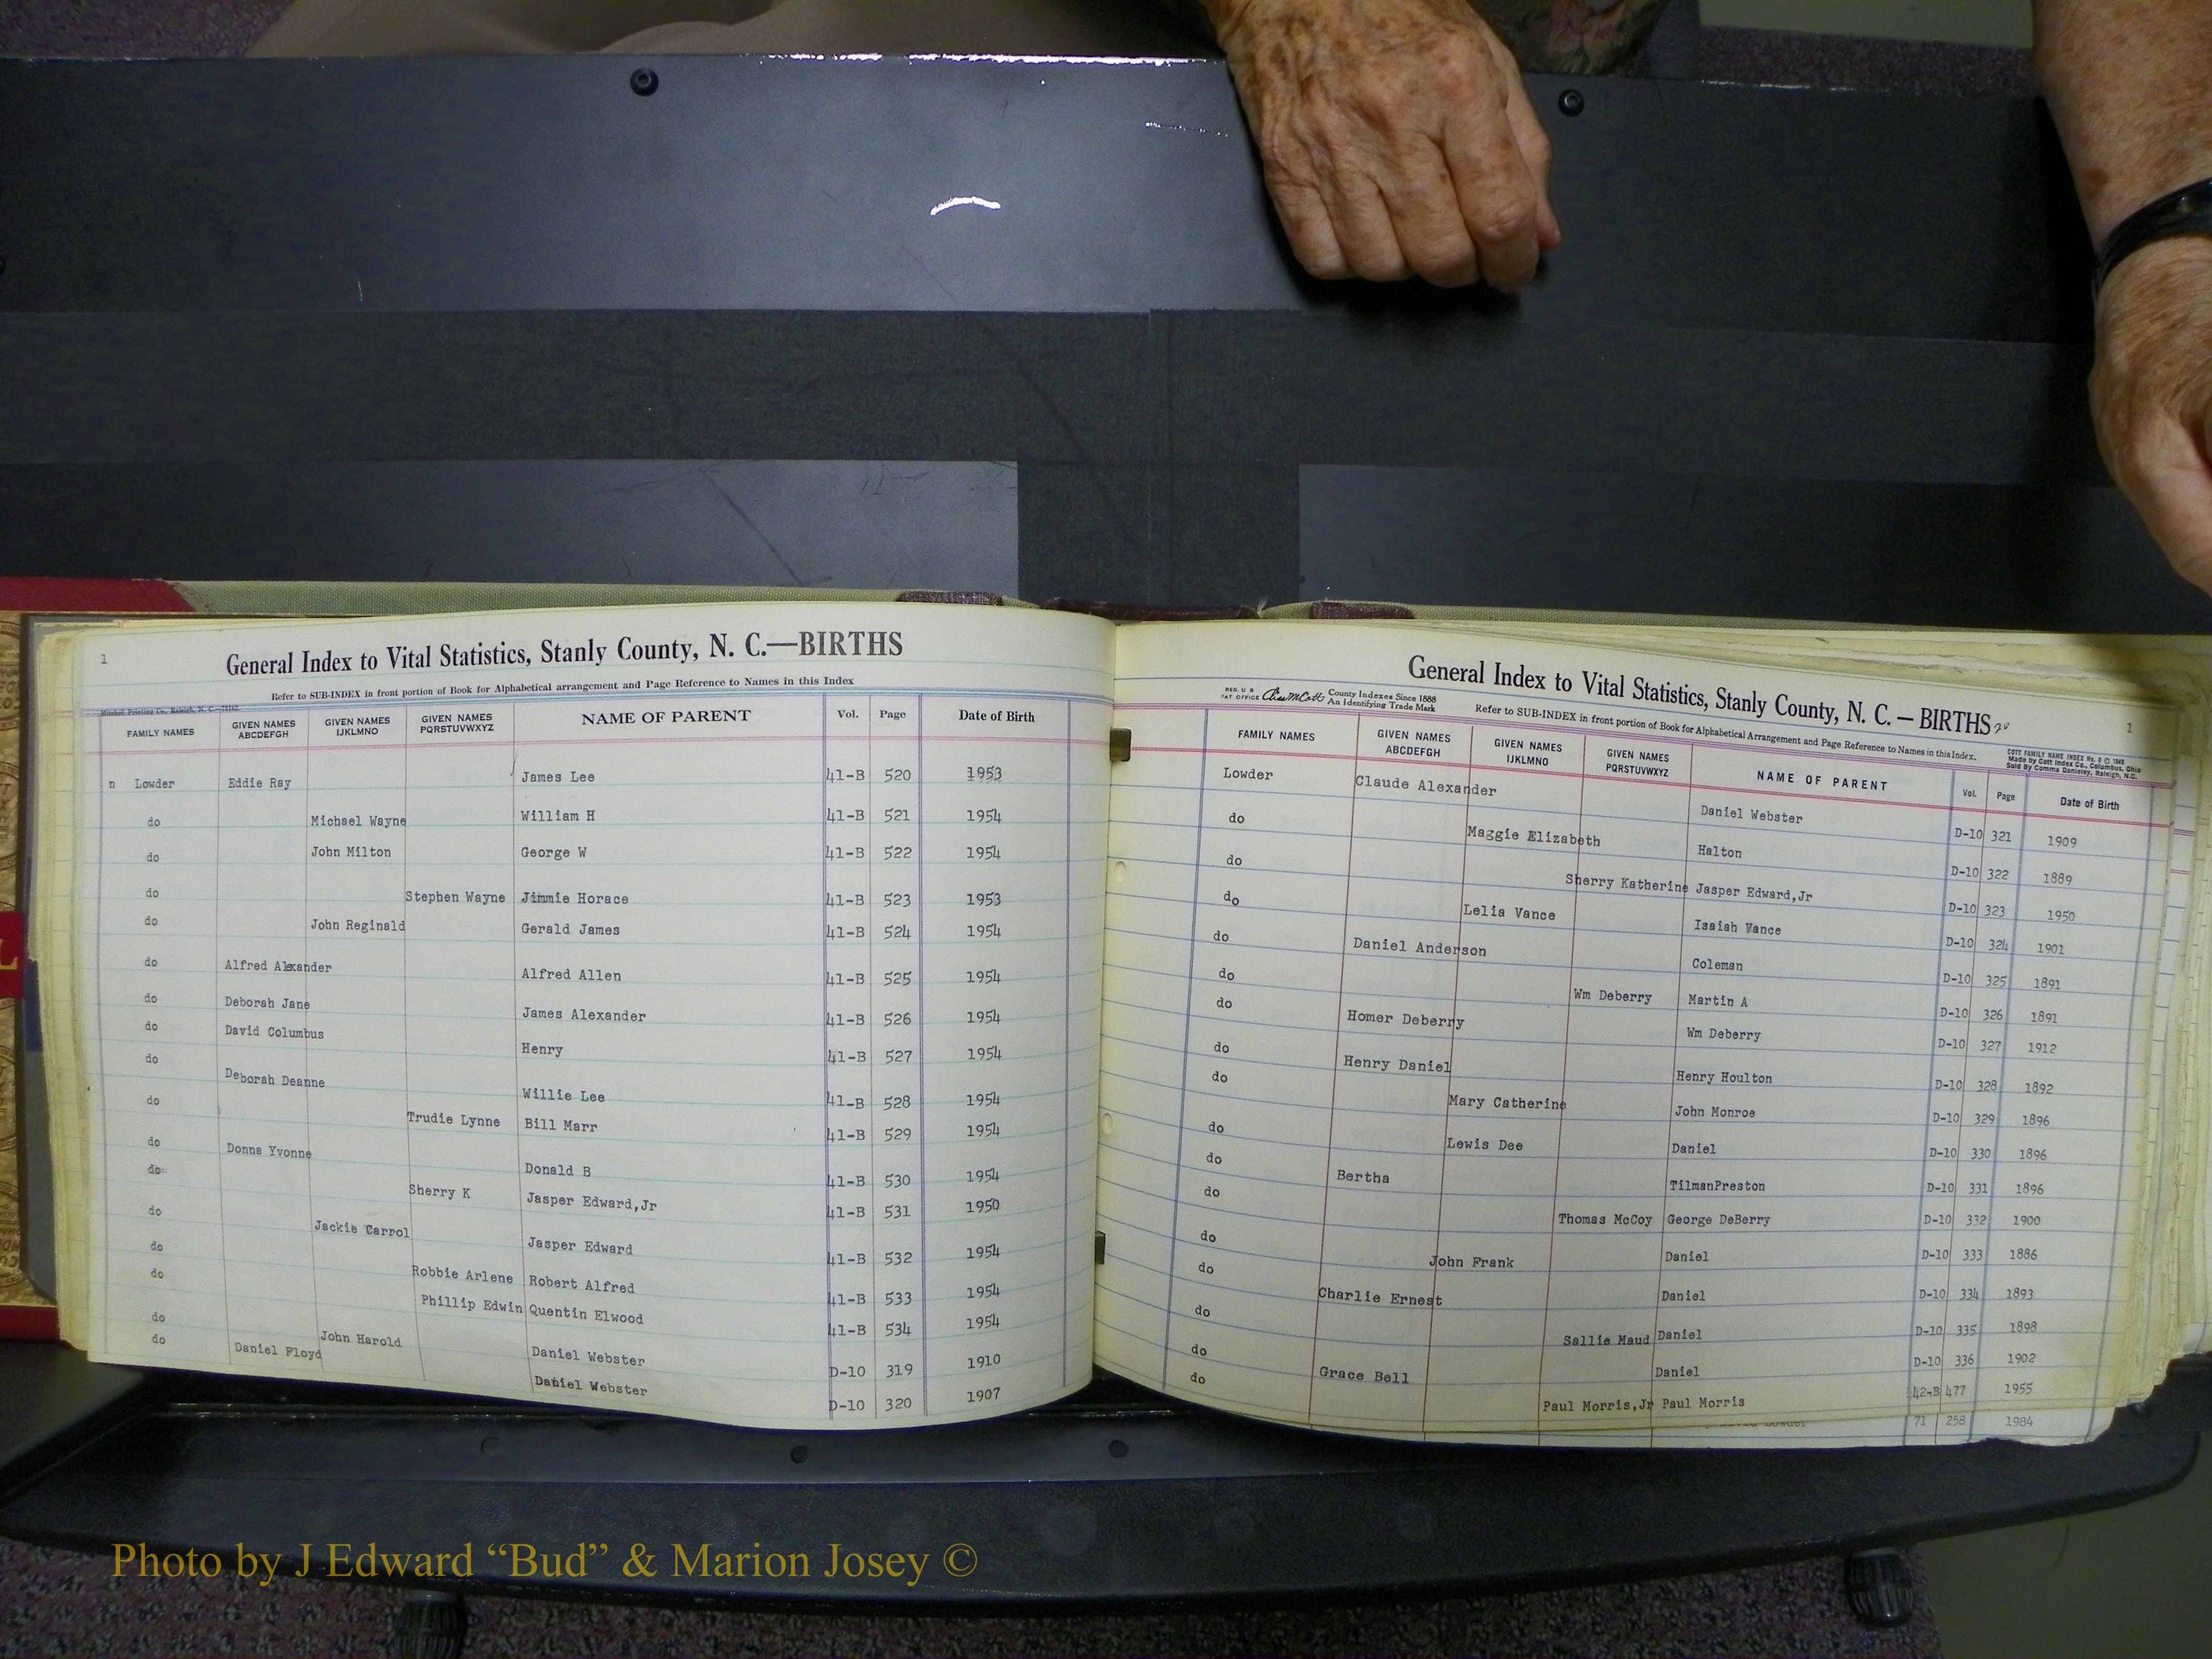 1
General Index to Vital Statistics, Stanly County, N. C.—BIRTHS
Refer to SUB-INDEX in front portion of Book for Alphabetical arrangement and Page Reference to Names in this Index
Mitchell Printing Co., Raleigh, N. C.
FAMILY NAMES GIVEN NAMES ABCDEFGH GIVEN NAMES IJKLMNO GIVEN NAMES PQRSTUVWXYZ NAME OF PARENT Vol. Page Date of Birth
n Lowder Eddie Ray James Lee 41-B 520 1953
do Michael Wayne William H 41-B 521 1954
do John Milton George W 41-B 522 1954
do Stephen Wayne Jimmie Horace 41-B 523 1953
do John Reginald Gerald James 41-B 524 1954
do Alfred Alexander Alfred Allen 41-B 525 1954
do Deborah Jane James Alexander 41-B 526 1954
do David Columbus Henry 41-B 527 1954
do Deborah Deanne Willie Lee 41-B 528 1954
do Trudie Lynne Bill Marr 41-B 529 1954
do Donna Yvonne Donald B 41-B 530 1954
do Sherry K Jasper Edward,Jr 41-B 531 1950
do Jackie Carrol Jasper Edward 41-B 532 1954
do Robbie Arlene Robert Alfred 41-B 533 1954
do Phillip Edwin Quentin Elwood 41-B 534 1954
do John Harold Daniel Webster D-10 319 1910
do Daniel Floyd Daniel Webster D-10 320 1907
General Index to Vital Statistics, Stanly County, N. C. — BIRTHS 20
1
REG. U S PAT OFFICE County Indexes Since 1888 An Identifying Trade Mark
Refer to SUB-INDEX in front portion of Book for Alphabetical Arrangement and Page Reference to Names in this Index.
COTT FAMILY NAME INDEX No. 8 © 1949
Made by Cott Index Co., Columbus, Ohio
Sold By Comma Daniéley, Raleigh, N.C.
FAMILY NAMES GIVEN NAMES ABCDEFGH GIVEN NAMES IJKLMNO GIVEN NAMES PQRSTUVWXYZ NAME OF PARENT Vol. Page Date of Birth
Lowder Claude Alexander Daniel Webster D-10 321 1909
do Maggie Elizabeth Halton D-10 322 1889
do Sherry Katherine Jasper Edward,Jr D-10 323 1950
do Lelia Vance Isaiah Vance D-10 324 1901
do Daniel Anderson Coleman D-10 325 1891
do Wm Deberry Martin A D-10 326 1891
do Homer Deberry Wm Deberry D-10 327 1912
do Henry Daniel Henry Houlton D-10 328 1892
do Mary Catherine John Monroe D-10 329 1896
do Lewis Dee Daniel D-10 330 1896
do Bertha TilmanPreston D-10 331 1896
do Thomas McCoy George DeBerry D-10 332 1900
do John Frank Daniel D-10 333 1886
do Charlie Ernest Daniel D-10 334 1893
do Sallie Maud Daniel D-10 335 1898
do Grace Bell Daniel D-10 336 1902
do Paul Morris,Jr Paul Morris 42-B 477 1955
71 258 1984
Photo by J Edward “Bud” & Marion Josey ©